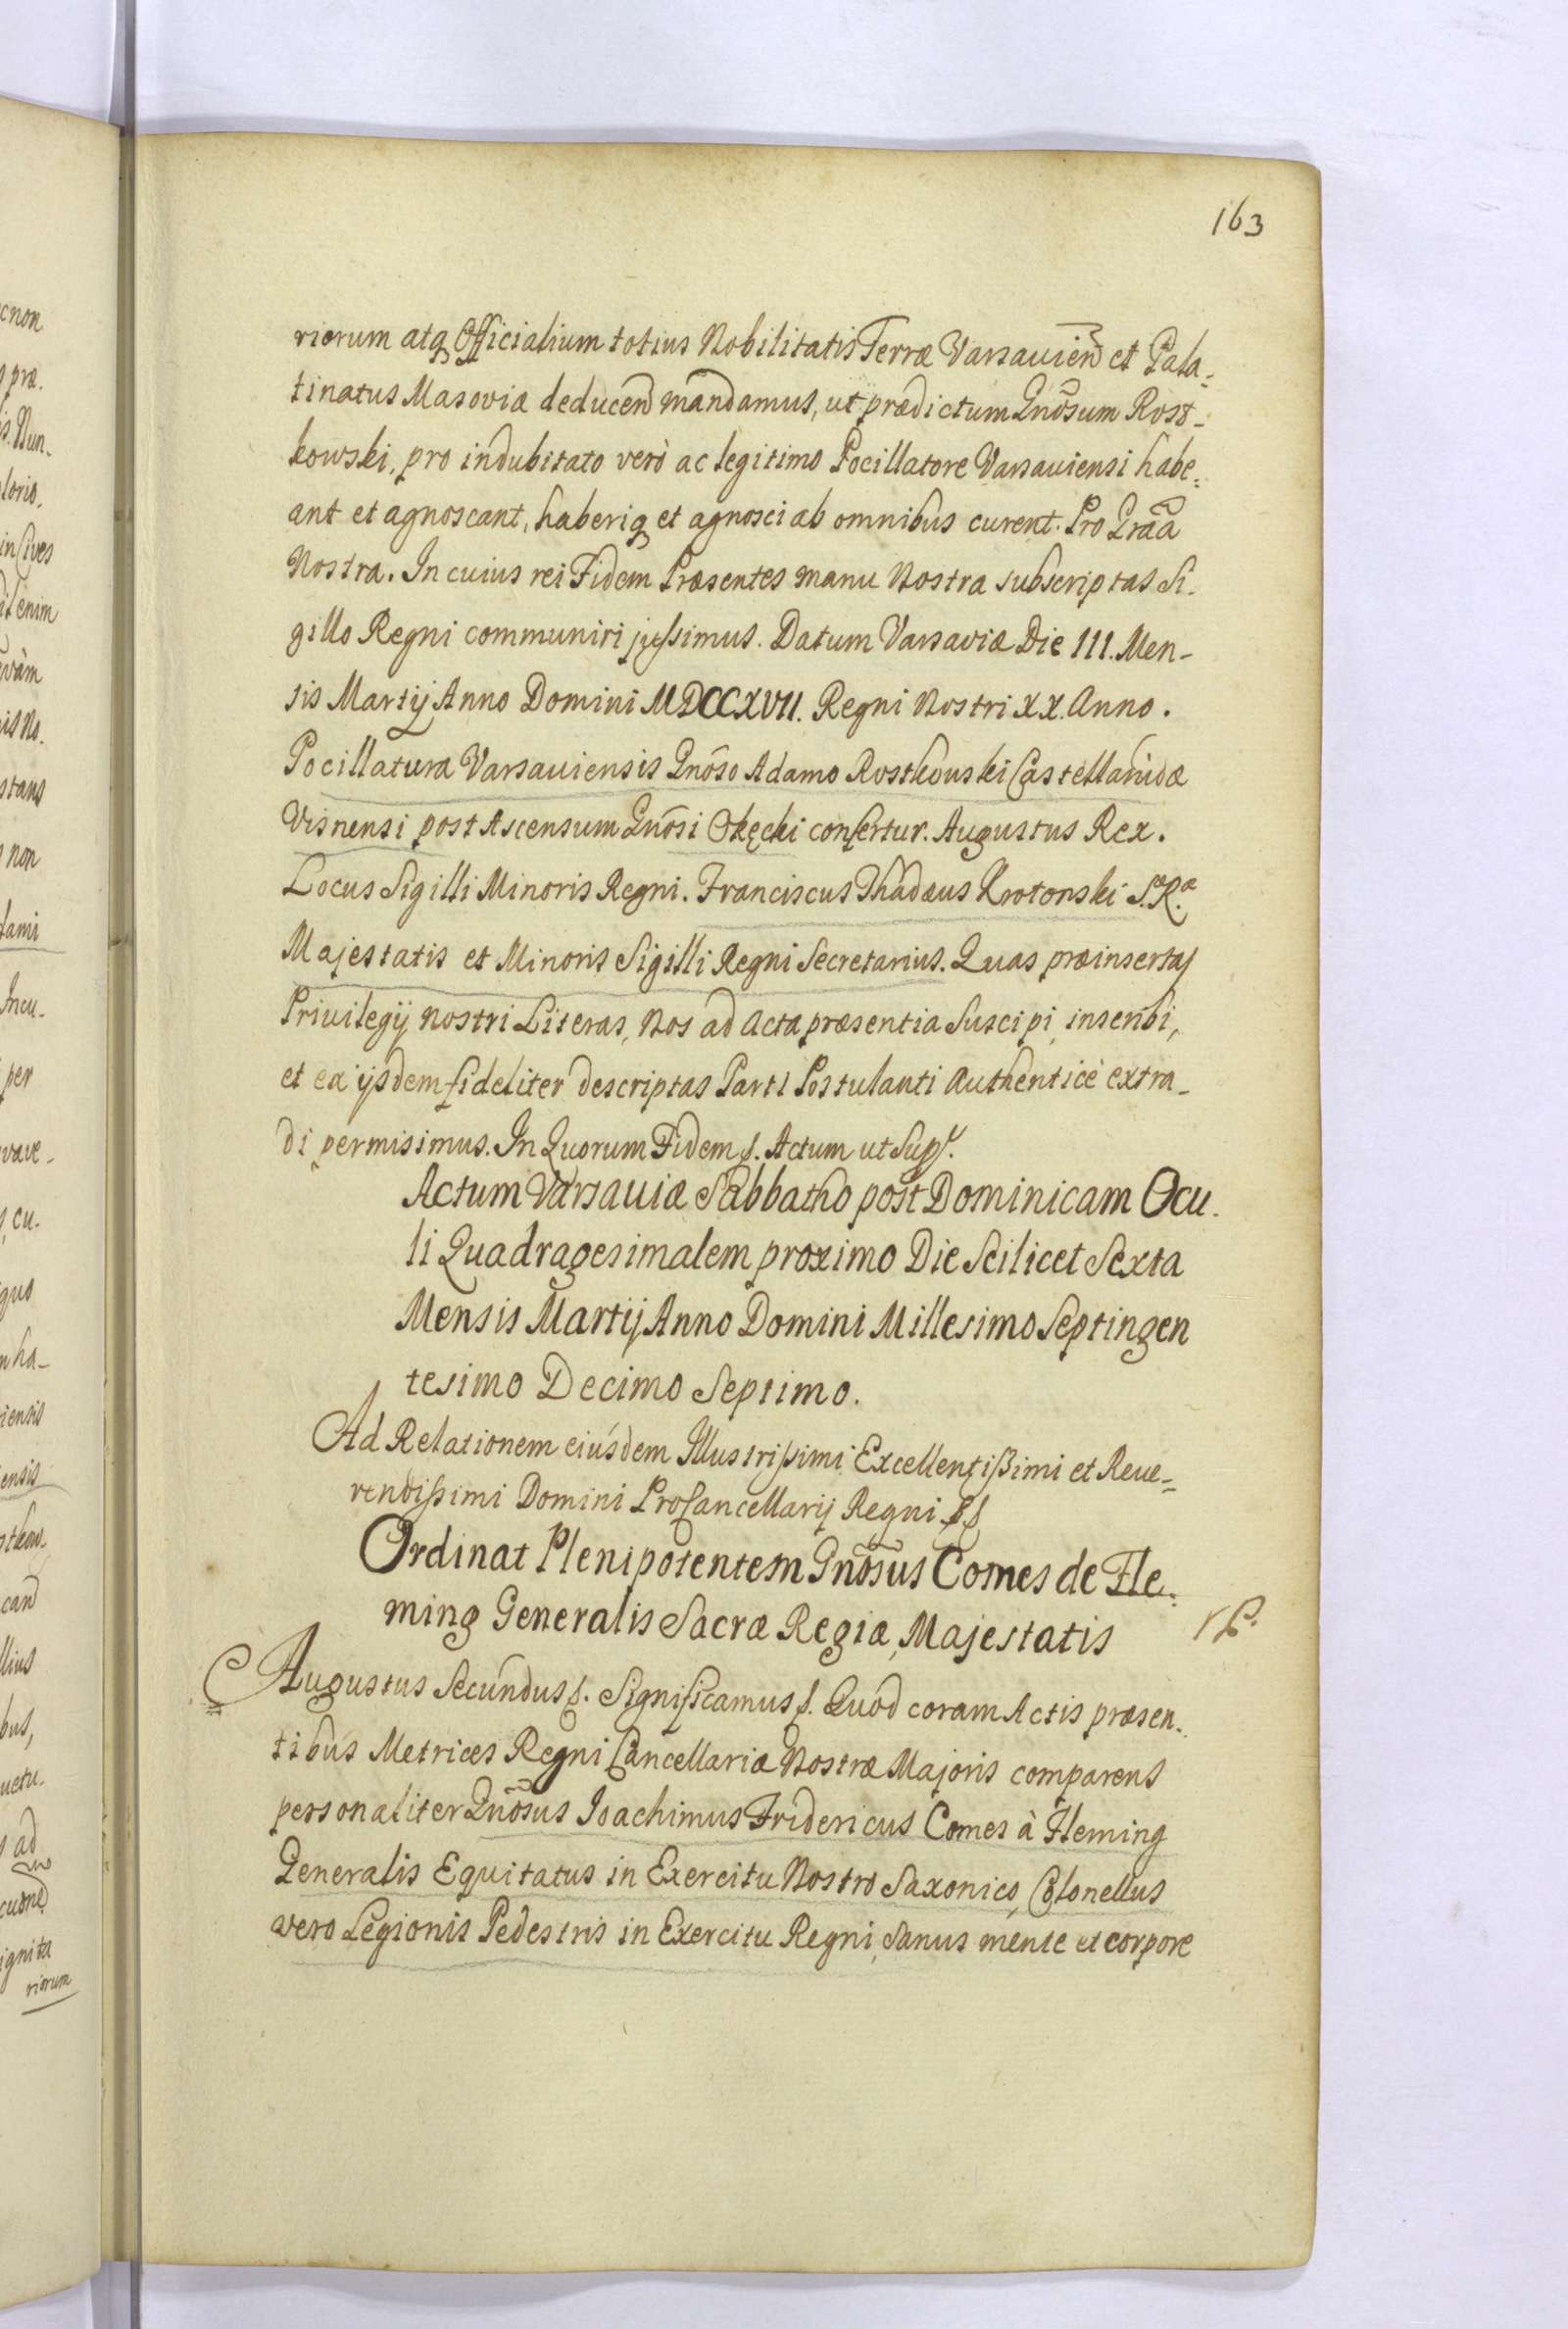 163
riorum atq Officialium totius Nobilitatis Terræ Varsauien et Pala-
tinatus Masoviæ deducen mandamus, ut prædictum Gnosum Rost-
kowski, pro indubitato verò ac legitimo Pocillatore Varsauiensi habe-
ant et agnoscant, haberiq et agnosci ab omnibus curent. Pro Graã
Nostra. In cuius rei Fidem Præsentes manu Nostra subscriptas Si-
gillo Regni communiri jussimus. Datum Varsaviæ Die III. Men-
sis Martij Anno Domini MDCCXVII. Regni Nostri XX. Anno.
Pocillatura Varsauiensis Gnõso Adamo Rostkouski Castellanidæ
Visnensi post Ascensum Gnõsi Okęcki confertur. Augustus Rex.
Locus Sigilli Minoris Regni. Franciscus Thadæus Krotonski S.R.
Majestatis et Minoris Sigilli Regni Secretarius. Quas præinsertas
Privilegij nostri Literas, Nos ad Acta præsentia Suscipi, inscribi,
et ex ijsdem fideliter descriptas Parti Postulanti Authenticè extra-
di permisimus. In Quorum Fidem. Actum ut Supr.
Actum Varsauiæ Sabbatho post Dominicam Ocu-
li Quadragesimalem proximo Die Scilicet Sexta
Mensis Martij Anno Domini Millesimo Septingen
tesimo Decimo Septimo.
Ad Relationem eiusdem Illustrissimi Excellentissimi et Reue-
rendissimi Domini ProCancellarij Regni
Ordinat Plenipotentem Gnõsus Comes de Fle-
ming Generalis Sacræ Regiæ Majestatis
Augustus Secundus. Significamus. Quod coram Actis præsen-
tibus Metrices Regni Cancellariæ Nostræ Majoris comparens
personaliter Gnõsus Ioachimus Fridericus Comes à Fleming
Generalis Equitatus in Exercitu Nostro Saxonico, Colonellus
vero Legionis Pedestris in Exercitu Regni, Sanus mente et corpore